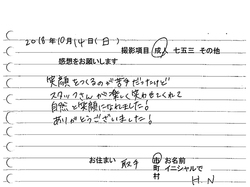 2018年10月14日(日)
撮影項目 成人 七五三 その他
感想をお願いします
笑顔をつくるのが苦手だったけど
スタッフさんが楽しく笑わせてくれて
自然と笑顔になれました!
ありがとうございました!
お住まい 取手 市町村 お名前 イニシャルで H.N